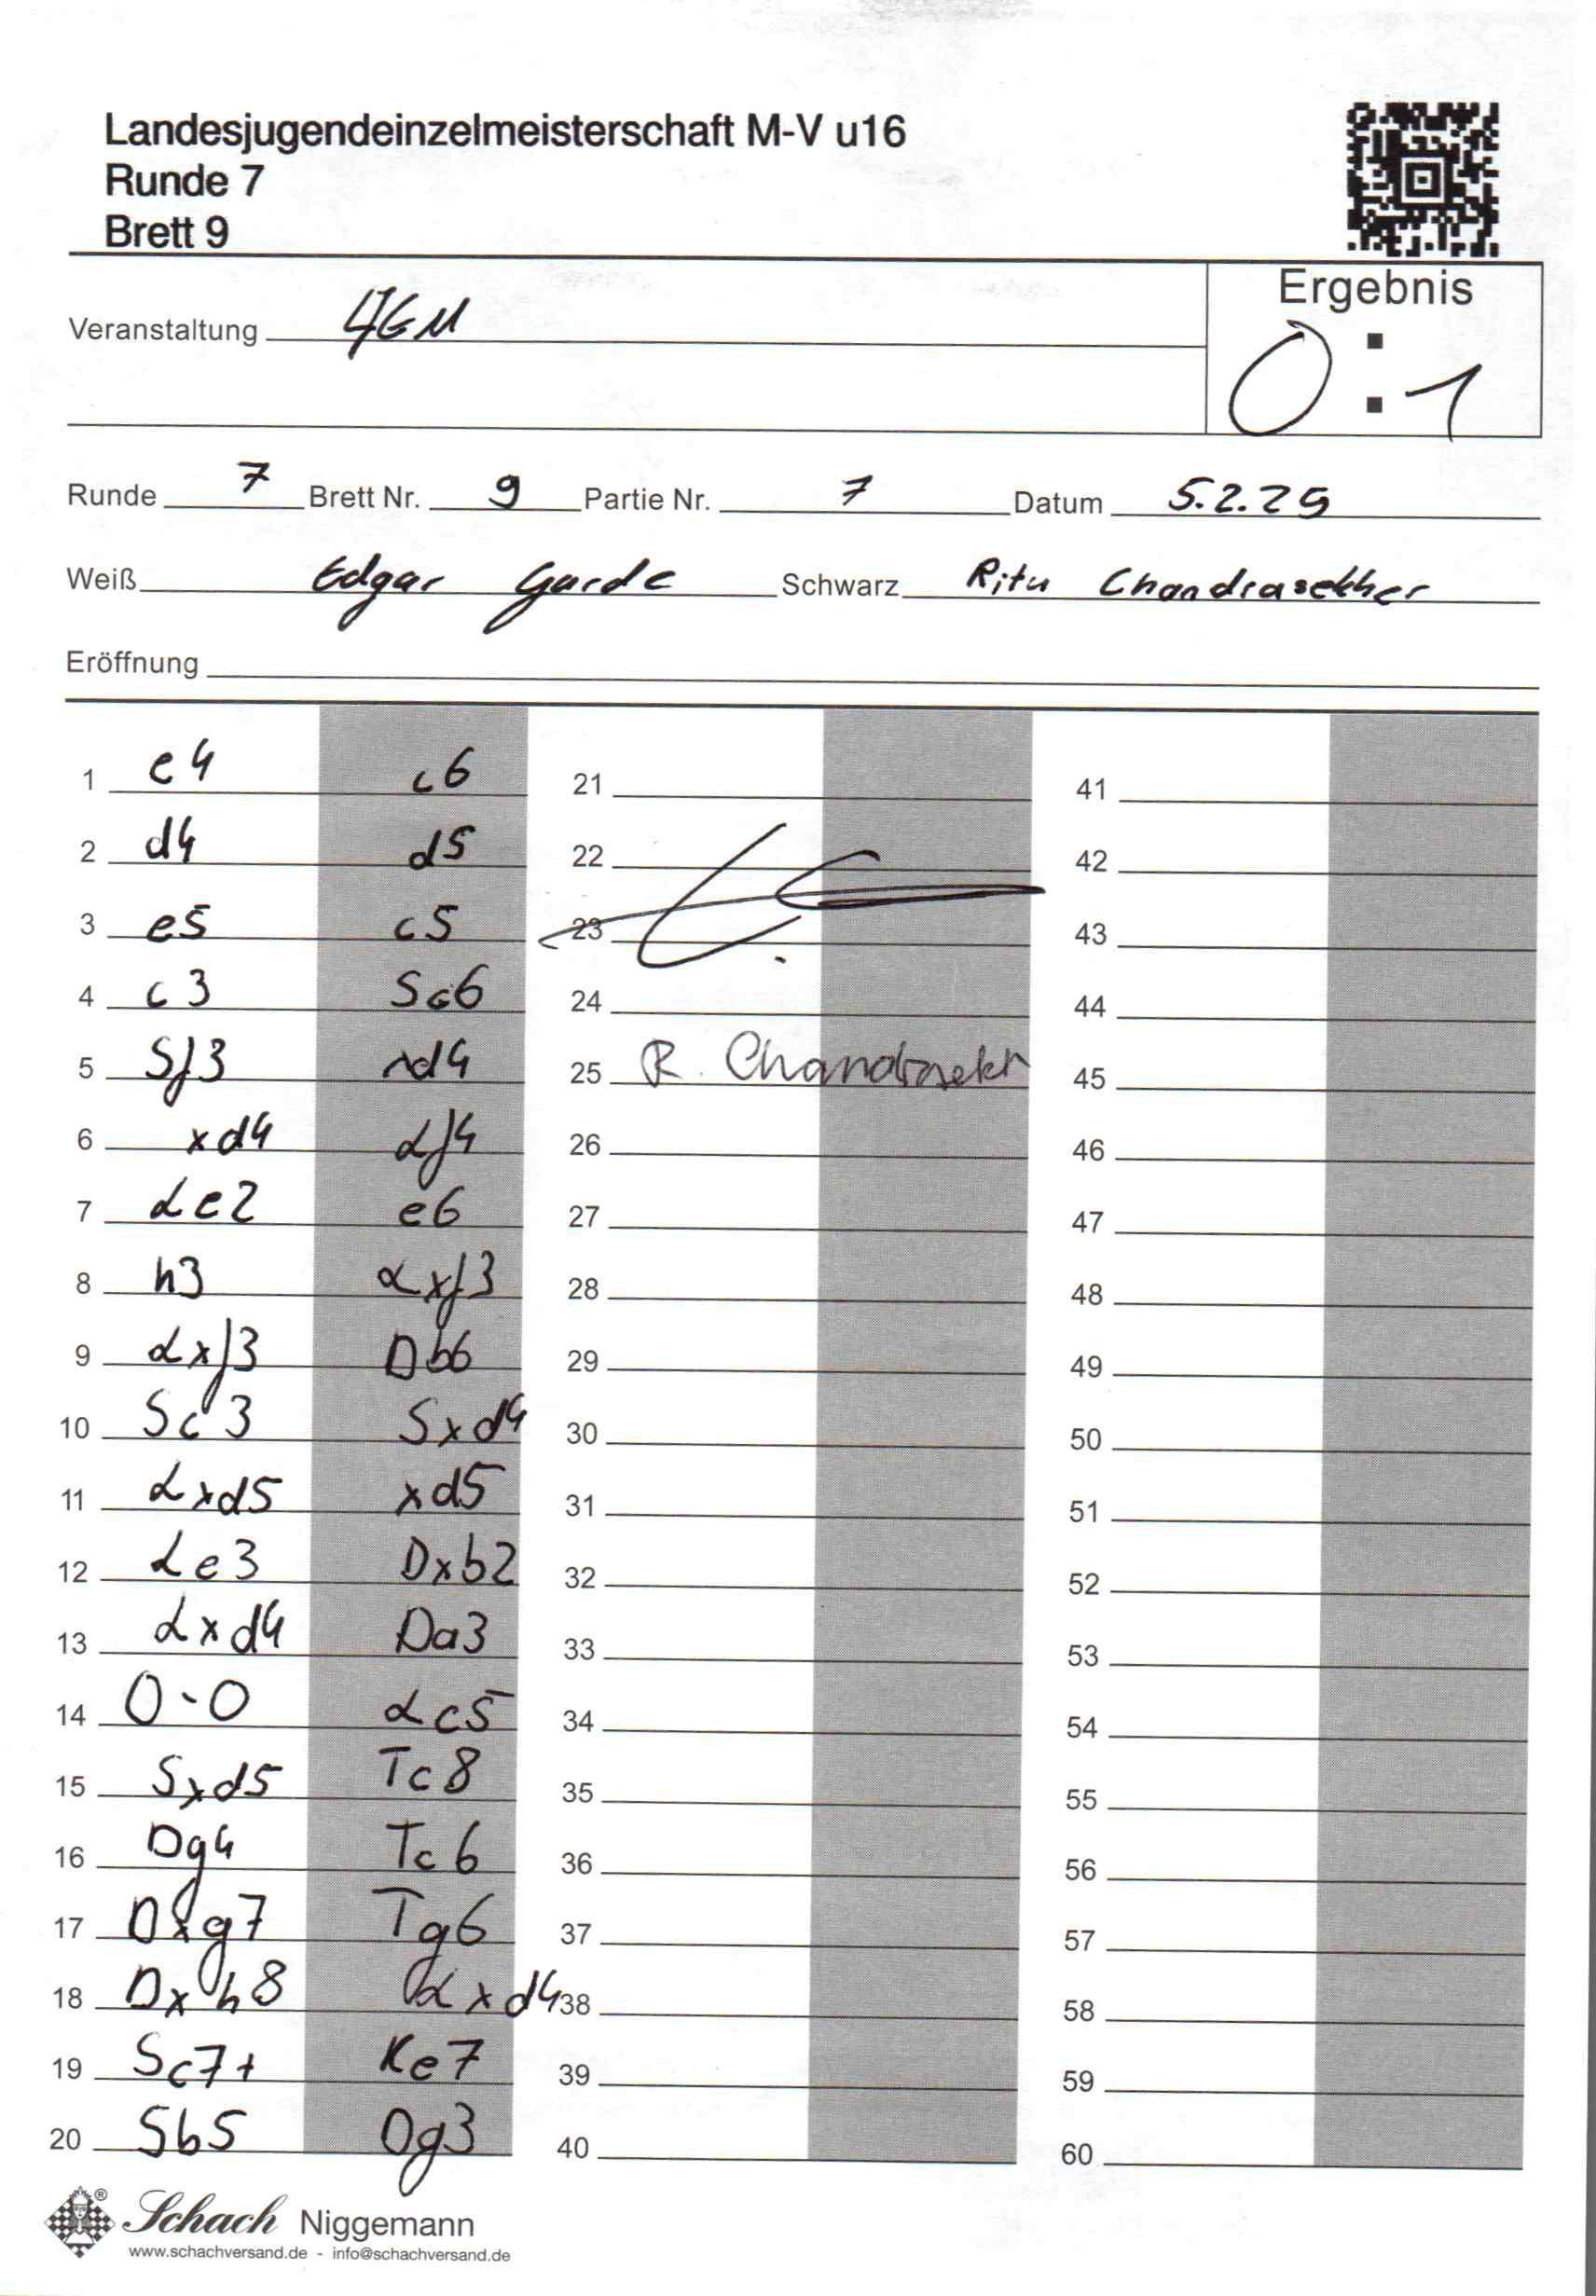 Landesjugendeinzelmeisterschaft M-V u16
Runde 7
Brett 9
Ergebnis
0 : 1
Veranstaltung
Runde 7 Brett Nr. 9 Partie Nr. 7 Datum 5.2.25
Weiß Edgar Garde Schwarz Ritu Chandrasekher
Eröffnung
1 e4 c6
2 d4 d5
3 e5 c5
4 c3 Sc6
5 Sf3 xd4
6 xd4 Lf4
7 Le2 e6
8 h3 Lxf3
9 Lxf3 Db6
10 Sc3 Sxd4
11 Lxd5 xd5
12 Le3 Dxb2
13 Lxd4 Da3
14 0-0 Lc5
15 Sxd5 Tc8
16 Dg4 Tc6
17 Dxg7 Tg6
18 Dxh8 Lxd4
19 Sc7+ Ke7
20 Sb5 Dg3
21
22
23
24
25 R. Chandrasekh
26
27
28
29
30
31
32
33
34
35
36
37
38
39
40
41
42
43
44
45
46
47
48
49
50
51
52
53
54
55
56
57
58
59
60
Schach Niggemann
www.schachversand.de - info@schachversand.de